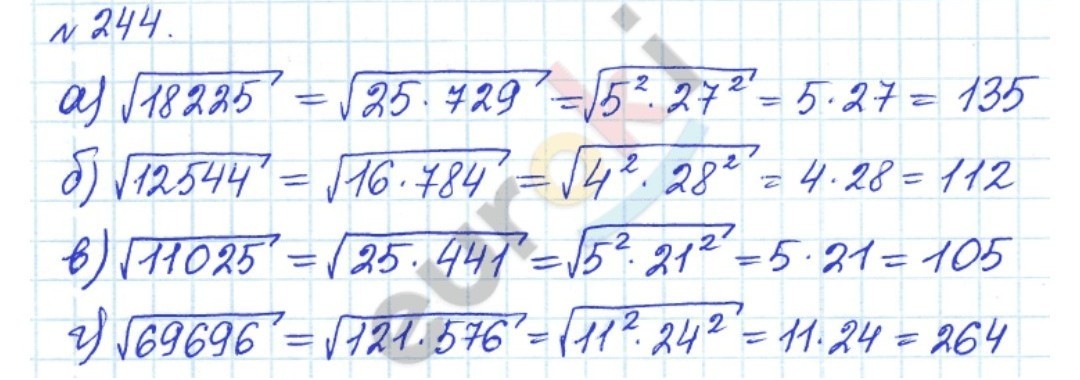 № 244.
а) √18225 = √25·729 = √5²·27² = 5·27 = 135
б) √12544 = √16·784 = √4²·28² = 4·28 = 112
в) √11025 = √25·441 = √5²·21² = 5·21 = 105
г) √69696 = √121·576 = √11²·24² = 11·24 = 264
euroki